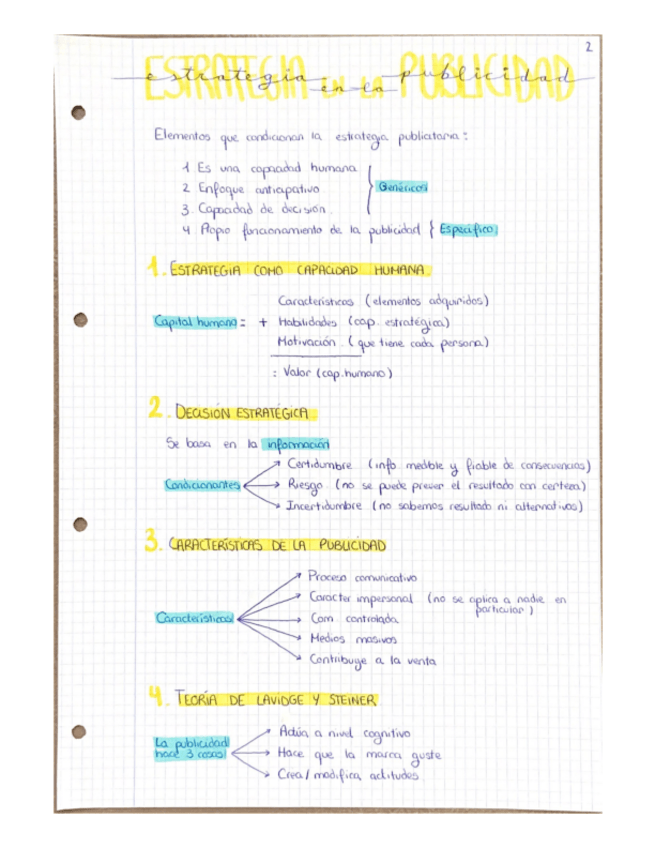 2
estrategia en la publicidad
ESTRATEGIA EN LA PUBLICIDAD
Elementos que condicionan la estrategia publicitaria:
1 Es una capacidad humana
2 Enfoque anticipativo
3. Capacidad de decisión
Genéricos
4 Propio funcionamiento de la publicidad { Específico
1. ESTRATEGIA COMO CAPACIDAD HUMANA
Características (elementos adquiridos)
Capital humano = + Habilidades (cap. estratégica)
Motivación (que tiene cada persona)
: Valor (cap. humano)
2. DECISIÓN ESTRATÉGICA
Se basa en la información
Certidumbre (info. medible y fiable de consecuencias)
Condicionantes Riesgo (no se puede prever el resultado con certeza)
Incertidumbre (no sabemos resultado ni alternativas)
3. CARACTERÍSTICAS DE LA PUBLICIDAD
Proceso comunicativo
Caracter impersonal (no se aplica a nadie en
particular)
Características Com. controlada
Medios masivos
Contribuye a la venta
4. TEORÍA DE LAVIDGE Y STEINER
Actúa a nivel cognitivo
La publicidad
hace 3 cosas Hace que la marca guste
Crea / modifica actitudes